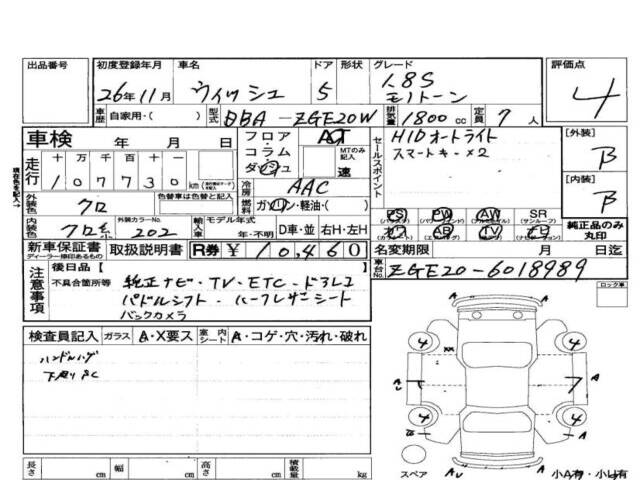 出品番号 初度登録年月 車名 ドア 形状 グレード 評価点
26年11月 ウィッシュ 5 1.8S
モノトーン
4
車歴 自家用・( ) 型式 DBA-ZGE20W 排気量 1800cc 定員 7人
車検 年 月 日 フロア・コラム・ダッシュ AT MTのみ記入 速
セールスポイント HIDオートライト
スマートキー×2
[外装] B
走行 十万 万 千 百 十 一
107730 km
冷房 AAC
[内装] B
現在色を記入→
外装色 クロ 色替車は色替と記入 燃料 ガソリン・軽油・( )
PS PW AW SR(サンルーフ)
内装色 クロ系 外装カラーNo. 202 輸入車 モデル年式 年・不明 D車・並 右H・左H
カワ AB TV ナビ
純正品のみ丸印
新車保証書 取扱説明書 R券 ¥10,460 名変期限 月 日迄
ディーラー捺印あるもの
車台No. ZGE20-6018989
注意事項 後日品[ ]
不具合箇所等 純正ナビ・TV・ETC・ドラレコ
パドルシフト・ハーフレザーシート
バックカメラ
ロック車
検査員記入 ガラス A・X要ス 室内シート A・コゲ・穴・汚れ・破れ
ハンドルハゲ
4 XX 4 A
A A
4 4 A
長さ cm 幅 cm 高さ cm 積載量 kg
スペア 小A有・小U有